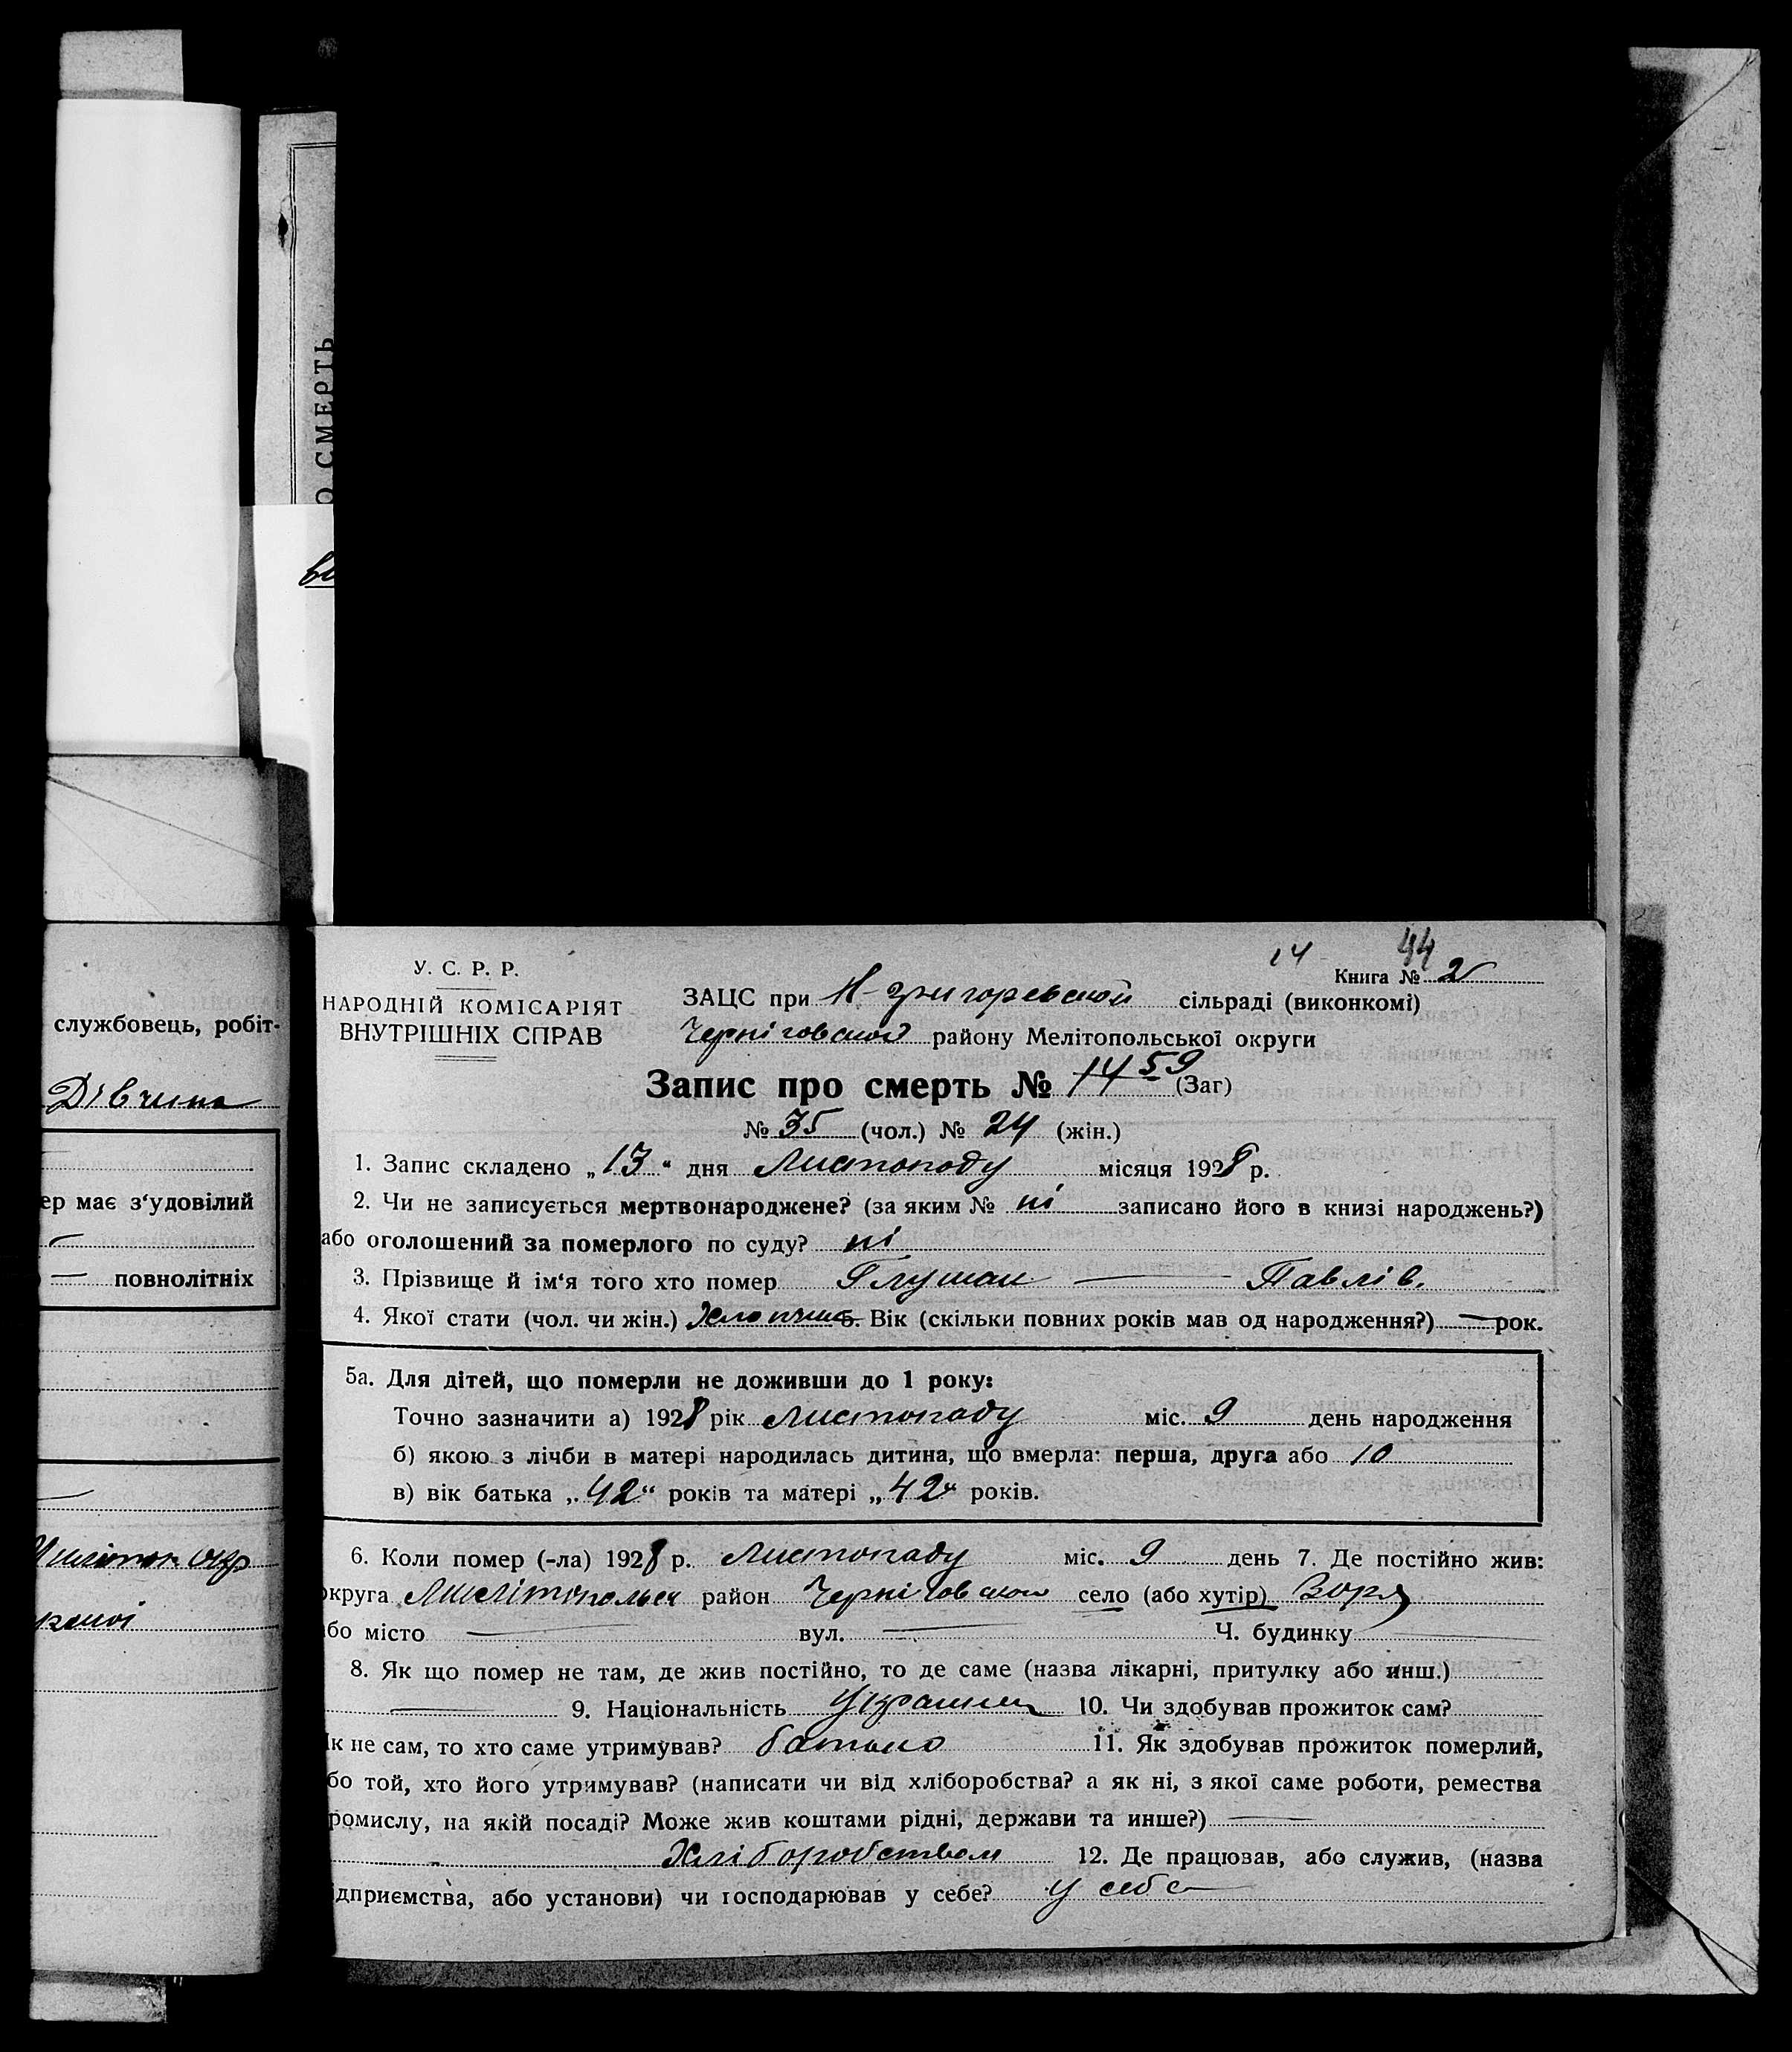 О СМЕРТЬ
службовець, робіт-
Дівчина
ер має з'удовілий
повнолітніх
14 44
У. С. Р. Р. Книга № 2
НАРОДНІЙ КОМІСАРІЯТ ЗАЦС при Н-Григоревской сільраді (виконкомі)
ВНУТРІШНІХ СПРАВ Черніговской району Мелітопольської округи
Запис про смерть № 14 59 (Заг)
№ 35 (чол.) № 24 (жін.)
1. Запис складено „13“ дня Листопаду місяця 1928 р.
2. Чи не записується мертвонароджене? (за яким № ні записано його в книзі народжень?)
або оголошений за померлого по суду? ні
3. Прізвище й ім'я того хто помер Глушак — Павлів.
4. Якої стати (чол. чи жін.) Хлопчик. Вік (скільки повних років мав од народження?) — рок.
5а. Для дітей, що померли не доживши до 1 року:
Точно зазначити а) 1928 рік Листопаду міс. 9 день народження
б) якою з лічби в матері народилась дитина, що вмерла: перша, друга або 10
в) вік батька „42“ років та матері „42“ років.
6. Коли помер (-ла) 1928 р. Листопаду міс. 9 день 7. Де постійно жив:
округа Милітопольск район Черніговской село (або хутір) Зоря
або місто — вул. — Ч. будинку —
8. Як що помер не там, де жив постійно, то де саме (назва лікарні, притулку або инш.)
— 9. Національність Украинец 10. Чи здобував прожиток сам?
Як не сам, то хто саме утримував? батько 11. Як здобував прожиток померлий,
бо той, хто його утримував? (написати чи від хліборобства? а як ні, з якої саме роботи, ремества
ромислу, на якій посаді? Може жив коштами рідні, держави та инше?) —
Хліборобством 12. Де працював, або служив, (назва
ідприємства, або установи) чи господарював у себе? У себе